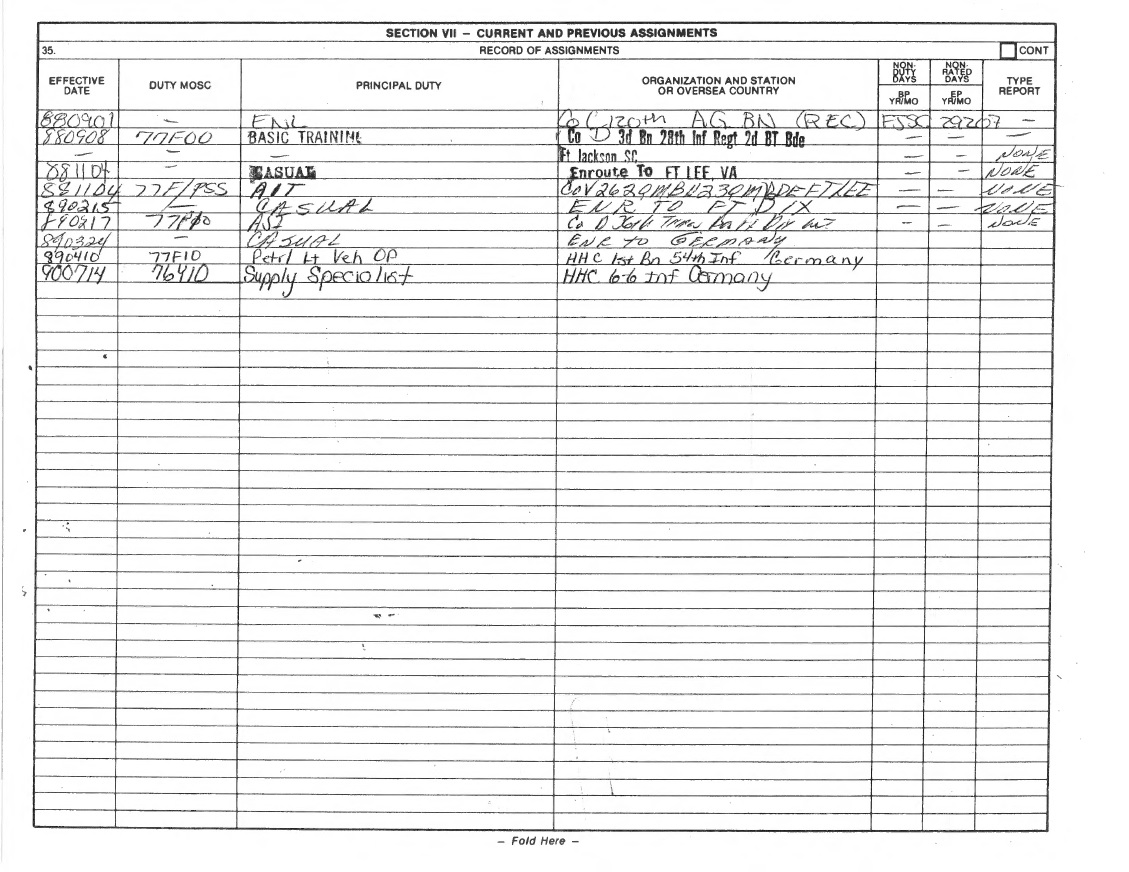 SECTION VII – CURRENT AND PREVIOUS ASSIGNMENTS
35. RECORD OF ASSIGNMENTS CONT
EFFECTIVE DATE DUTY MOSC PRINCIPAL DUTY ORGANIZATION AND STATION OR OVERSEA COUNTRY NON-DUTY DAYS BP YR/MO NON-RATED DAYS EP YR/MO TYPE REPORT
880901 — ENL Co C 120th AG BN (REC) FJSC 29207 —
880908 77F00 BASIC TRAINING Co D 3d Bn 28th Inf Regt 2d BT Bde — —
— — — Ft Jackson SC — — NONE
881104 — CASUAL Enroute To FT LEE, VA — — NONE
881104 77F/PSS AIT CoV 262QMBN 23QM BDE FT LEE — — NONE
890215 — CASUAL ENR TO FT DIX — — NONE
890217 77F00 ASI Co D Trans Bn Ft Dix — — NONE
890324 — CASUAL ENR to GERMANY
890410 77F10 Petrl Lt Veh OP HHC 1st Bn 54th Inf Germany
900714 76Y10 Supply Specialist HHC 6-6 Inf Germany
– Fold Here –